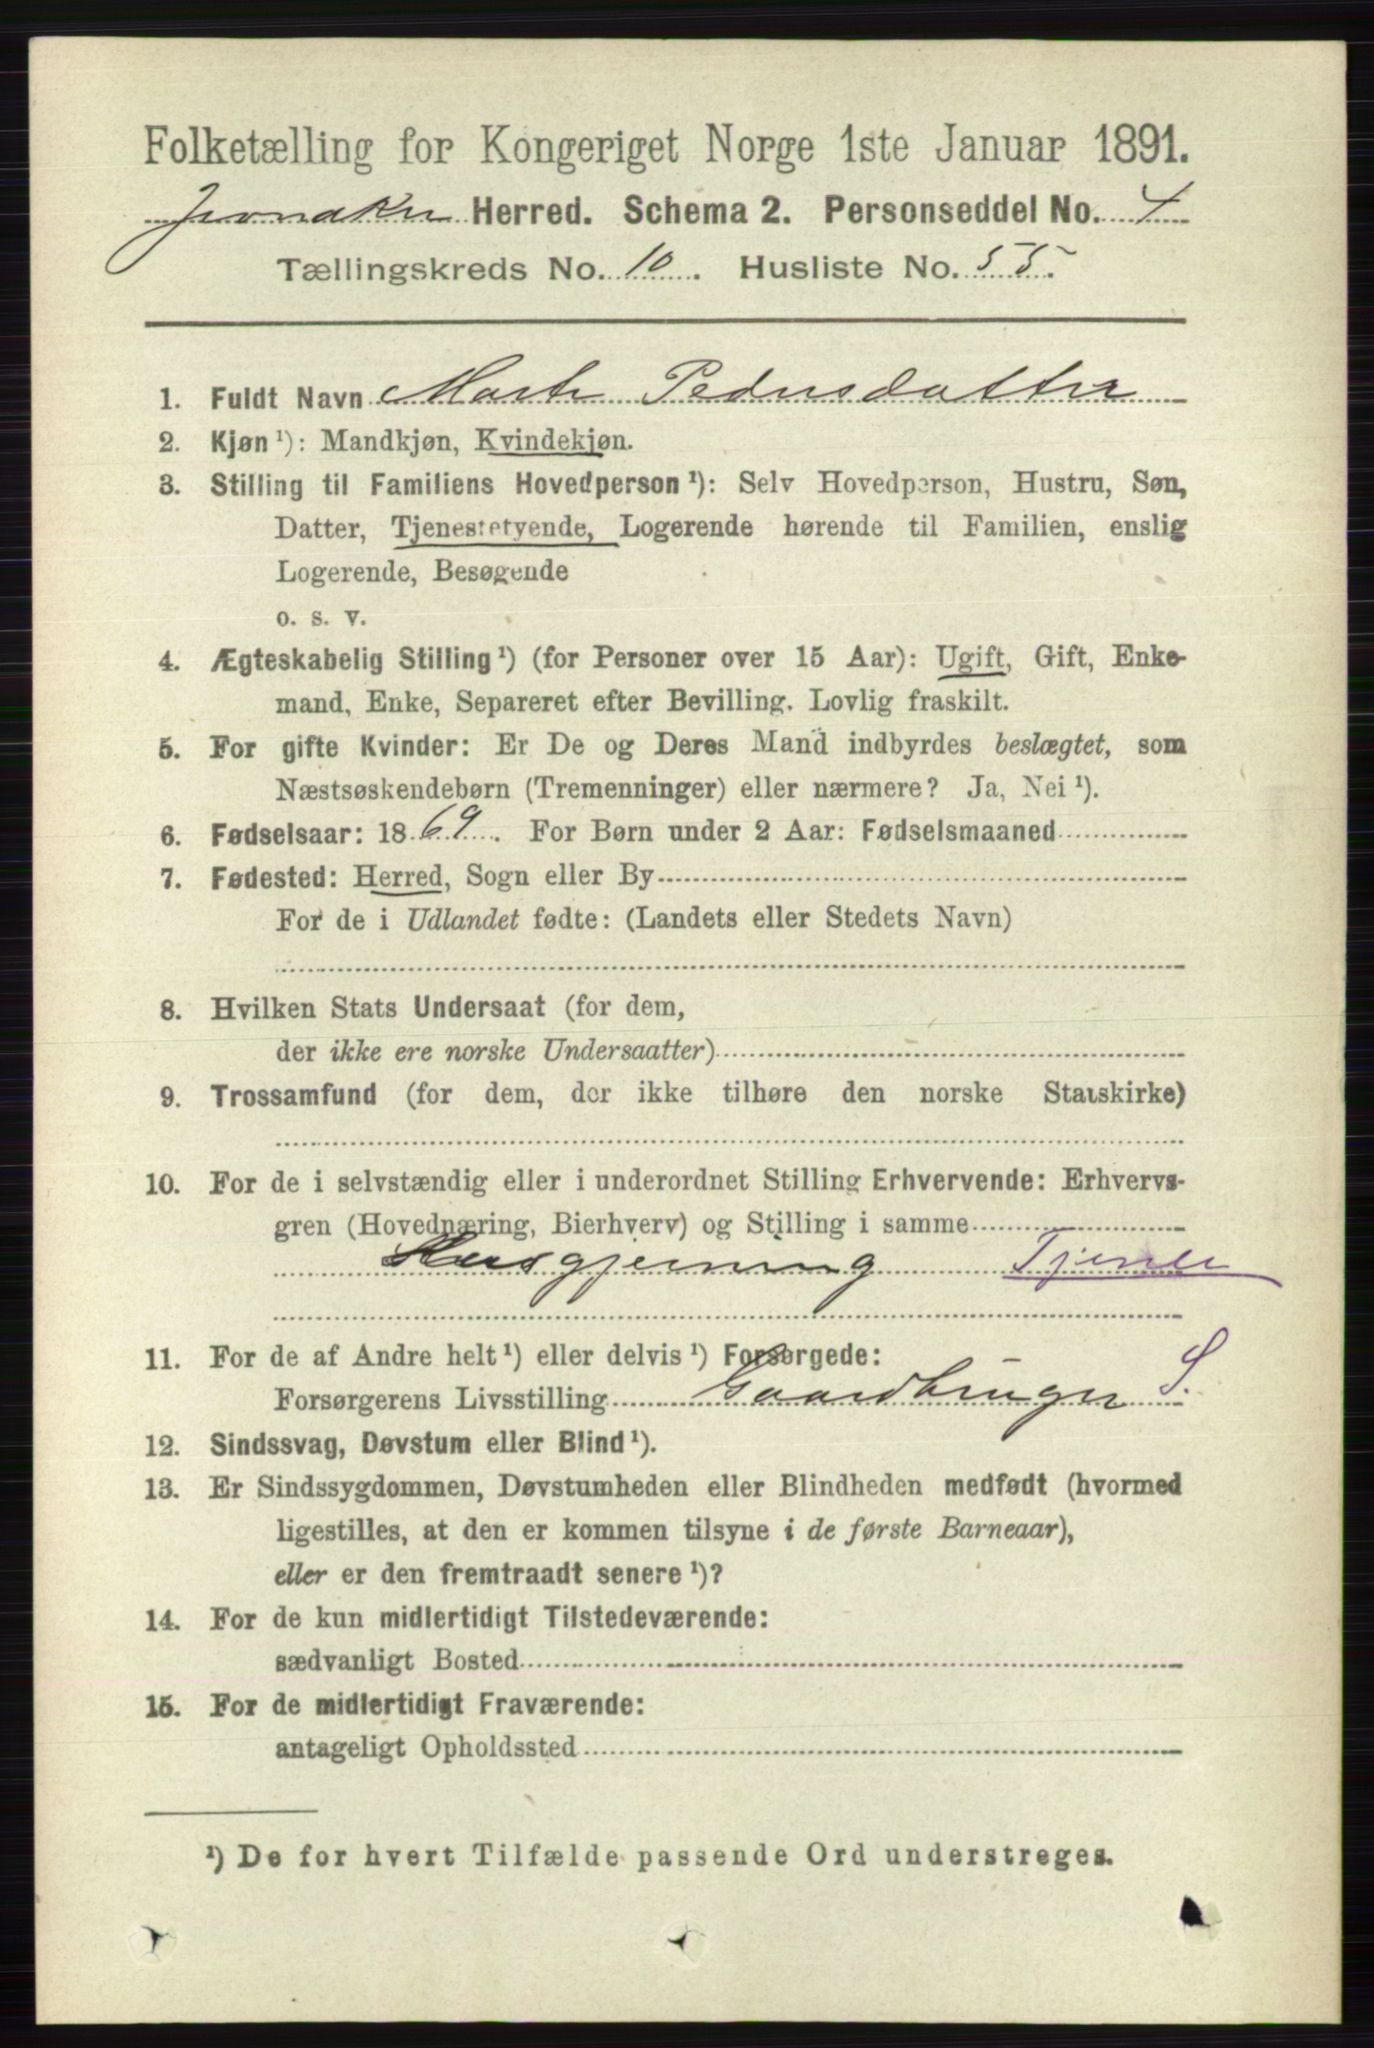 Folketælling for Kongeriget Norge 1ste Januar 1891.
Jevnaker Herred. Schema 2. Personseddel No. 4
Tællingskreds No. 10. Husliste No. 55.
1. Fuldt Navn Marte Pedersdatter
2. Kjøn ¹): Mandkjøn, Kvindekjøn.
3. Stilling til Familiens Hovedperson ¹): Selv Hovedperson, Hustru, Søn,
Datter, Tjenestetyende, Logerende hørende til Familien, enslig
Logerende, Besøgende
o. s. v.
4. Ægteskabelig Stilling ¹) (for Personer over 15 Aar): Ugift, Gift, Enke-
mand, Enke, Separeret efter Bevilling. Lovlig fraskilt.
5. For gifte Kvinder: Er De og Deres Mand indbyrdes beslægtet, som
Næstsøskendebørn (Tremenninger) eller nærmere? Ja, Nei ¹).
6. Fødselsaar: 1869. For Børn under 2 Aar: Fødselsmaaned
7. Fødested: Herred, Sogn eller By
For de i Udlandet fødte: (Landets eller Stedets Navn)
8. Hvilken Stats Undersaat (for dem,
der ikke ere norske Undersaatter)
9. Trossamfund (for dem, der ikke tilhøre den norske Statskirke)
10. For de i selvstændig eller i underordnet Stilling Erhvervende: Erhvervs-
gren (Hovednæring, Bierhverv) og Stilling i samme
Husgjerning Tjener
11. For de af Andre helt ¹) eller delvis ¹) Forsørgede:
Forsørgerens Livsstilling Gaardbruger S.
12. Sindssvag, Døvstum eller Blind ¹).
13. Er Sindssygdommen, Døvstumheden eller Blindheden medfødt (hvormed
ligestilles, at den er kommen tilsyne i de første Barneaar),
eller er den fremtraadt senere ¹)?
14. For de kun midlertidigt Tilstedeværende:
sædvanligt Bosted
15. For de midlertidigt Fraværende:
antageligt Opholdssted
¹) De for hvert Tilfælde passende Ord understreges.